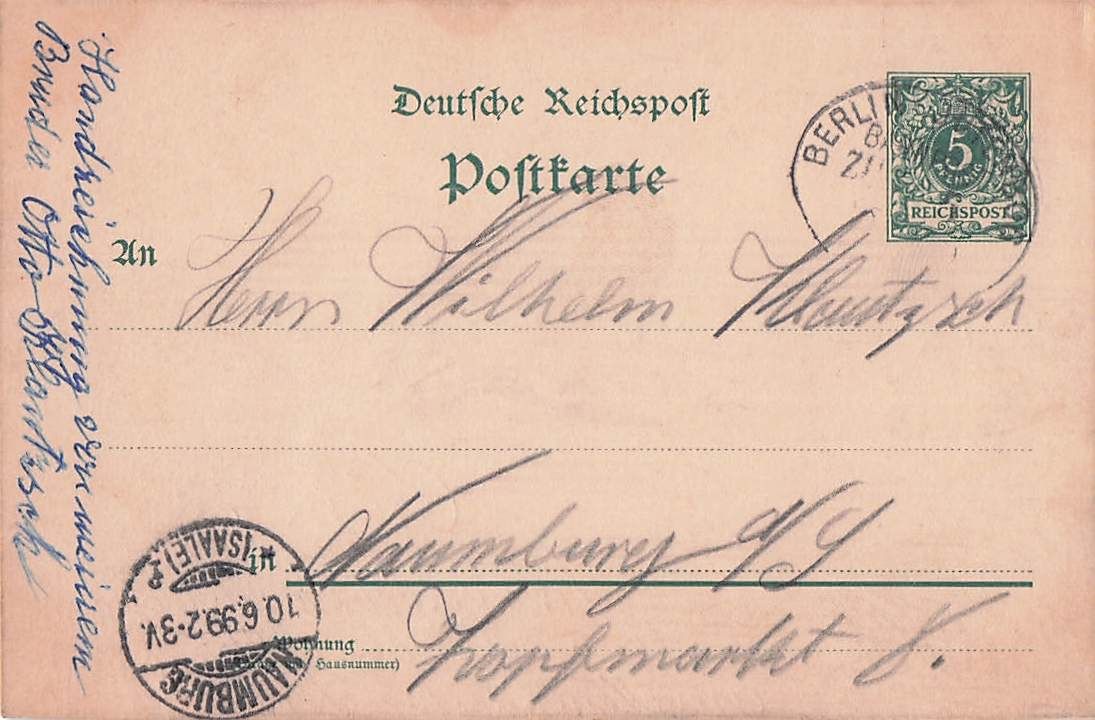 Deutsche Reichspost
Postkarte
5
PFENNIG
REICHSPOST
BERLIN
An Herrn Wilhelm Klautzsch
in Naumburg a/S
Wohnung
(Straße und Hausnummer)
Topfmarkt 8.
NAUMBURG
10.6.99.2-3V.
(SAALE)
Handzeichnung von meinem
Bruder Otto Klautzsch